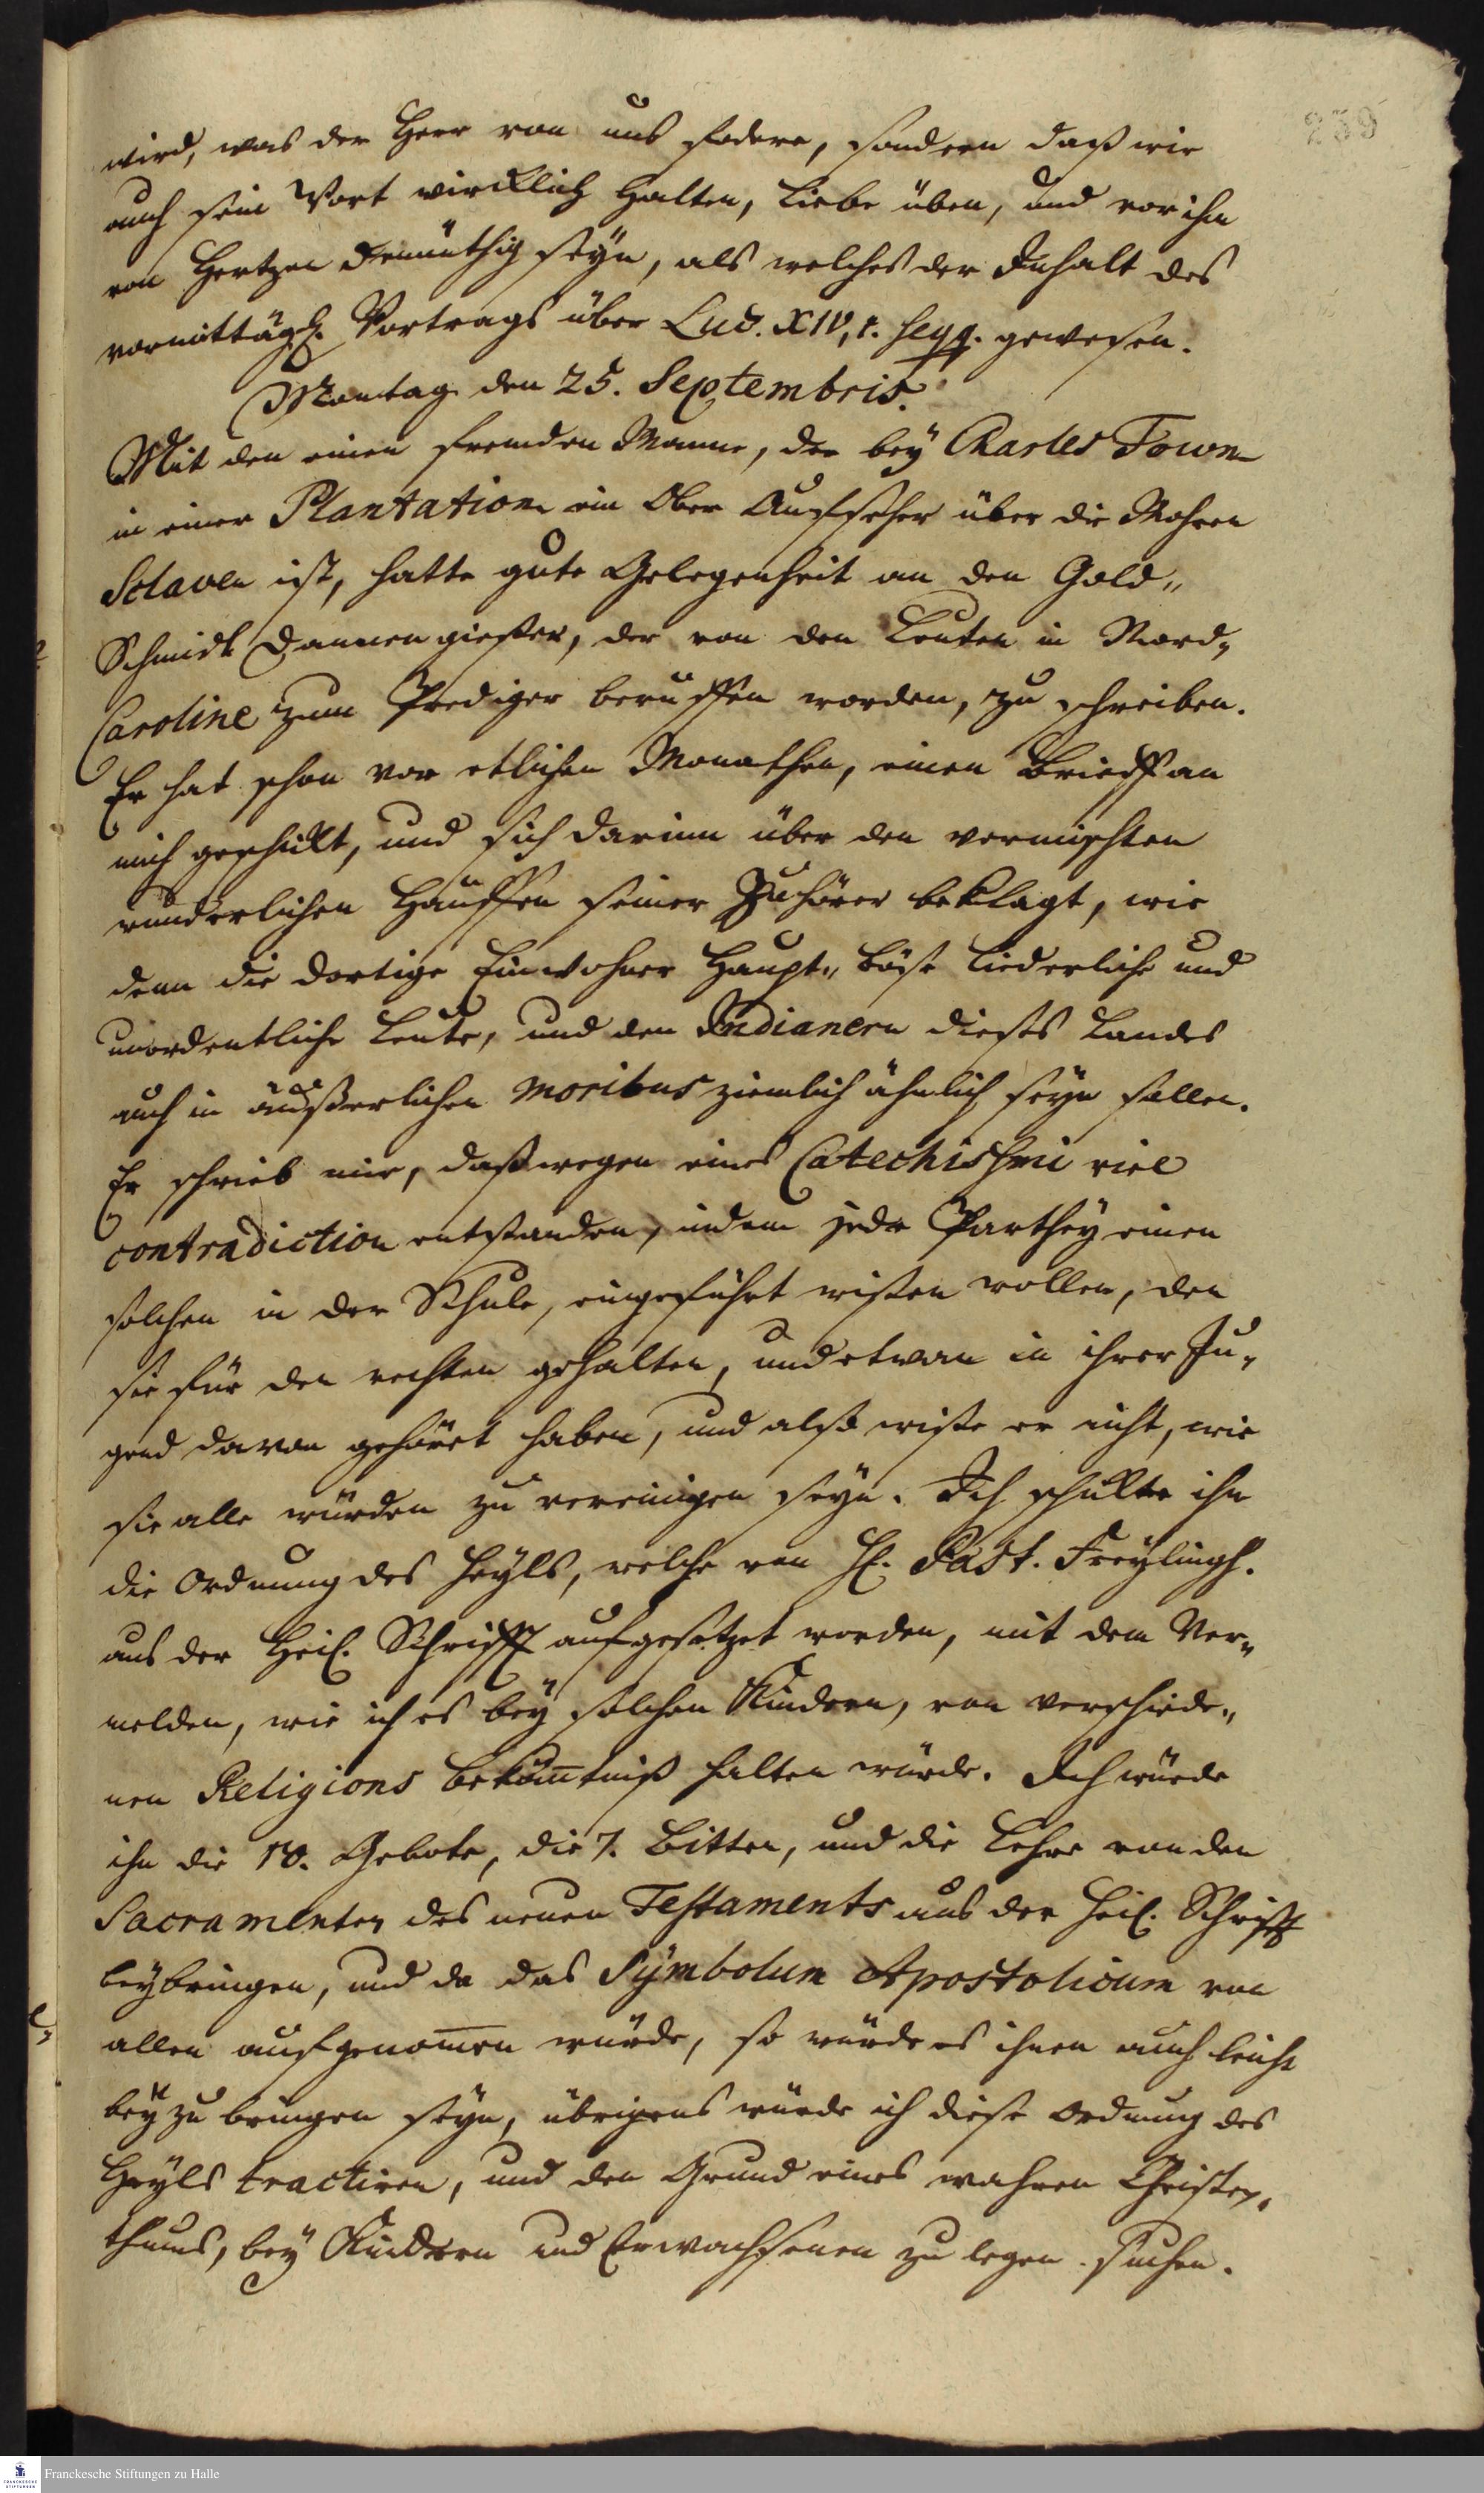 239
wird, was der Herr von uns fodere, sondern daß wir
auch sein Wort wircklich halten, Liebe üben, und vor ihm
von Hertzen demüthig seyn, als welches der Inhalt des
vormittägl. Vortrags über Luc. XIV, 1. seqq. gewesen.
Montag den 25. Septembris.
Mit den einen fremden Manne, der bey Charles Town
in einer Plantation ein Ober Aufseher über die Mohren
Sclaven ist, hatte gute Gelegenheit an den Gold„
Schmidt Dannengießer, der von den Leuten in Nord„
Caroline zum Prediger beruffen worden, zu schreiben.
Er hat schon vor etlichen Monathen, einen Brieff an
mich geschickt, und sich darinn über den vermischten
wunderlichen Hauffen seiner Zuhörer beklagt, wie
denn die dortige Einwohner Haupt„ böse liederliche und
unordentliche Leute, und den Indianern dieses Landes
auch in äußerlichen moribus ziemlich ähnlich seyn sollen.
Er schrieb mir, daß wegen eines Catechismi viel
contradiction entstanden, indem jede Parthey einen
solchen in der Schule, eingeführt wißen wollen, den
sie für den rechten gehalten, und etwan in ihrer Ju„
gend davon gehöret haben, und also wiste er nicht, wie
sie alle würden zu vereinigen seyn. Ich schickte ihm
die Ordnung des Heyls, welche von H. Past. Freylingh.
aus der Heil. Schrifft aufgesetzet worden, mit dem Ver„
melden, wie ich es bey solchen Kindern, von verschiede„
nen Religions bekäntniß halten würde. Ich würde
ihn die 10. Gebote, die 7. Bitten, und die Lehre von den
Sacramenten des neuen Testaments aus der Heil. Schrifft
beybringen, und da das Symbolum Apostolicum von
allen aufgenomen würde, so würde es ihnen auch leicht
bey zu bringen seyn, übrigens würde ich diese Ordnung des
Heyls tractiren, und den Grund eines wahren Christen„
thums, bey Kindern und Erwachsenen zu legen suchen.
Franckesche Stiftungen zu Halle